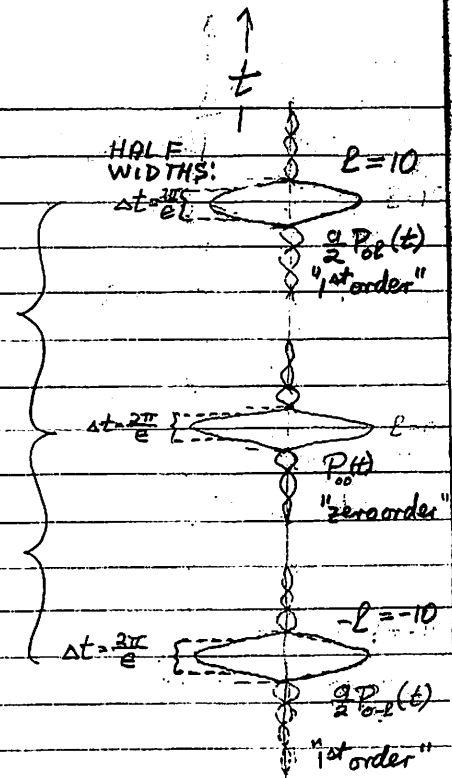 t
HALF
WIDTHS:
l = 10
Δt = 2π/e
a/2 P₀ₗ(t)
"1st order"
Δt = 2π/e
l
P₀₀(t)
"zero order"
-l = -10
Δt = 2π/e
a/2 P₀₋ₗ(t)
"1st order"